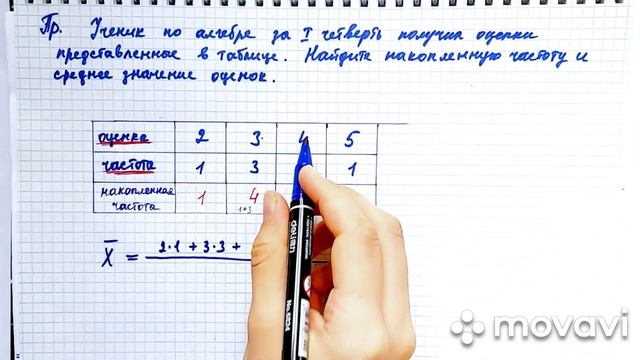 Пр. Ученик по алгебре за I четверть получил оценки
представленное в таблице. Найдите накопленную частоту и
среднее значение оценок.
оценка 2 3 4 5
частота 1 3 1
накопленная частота 1 4
1+3
X̅ = 2·1 + 3·3 +
deli
No. 6824
movavi